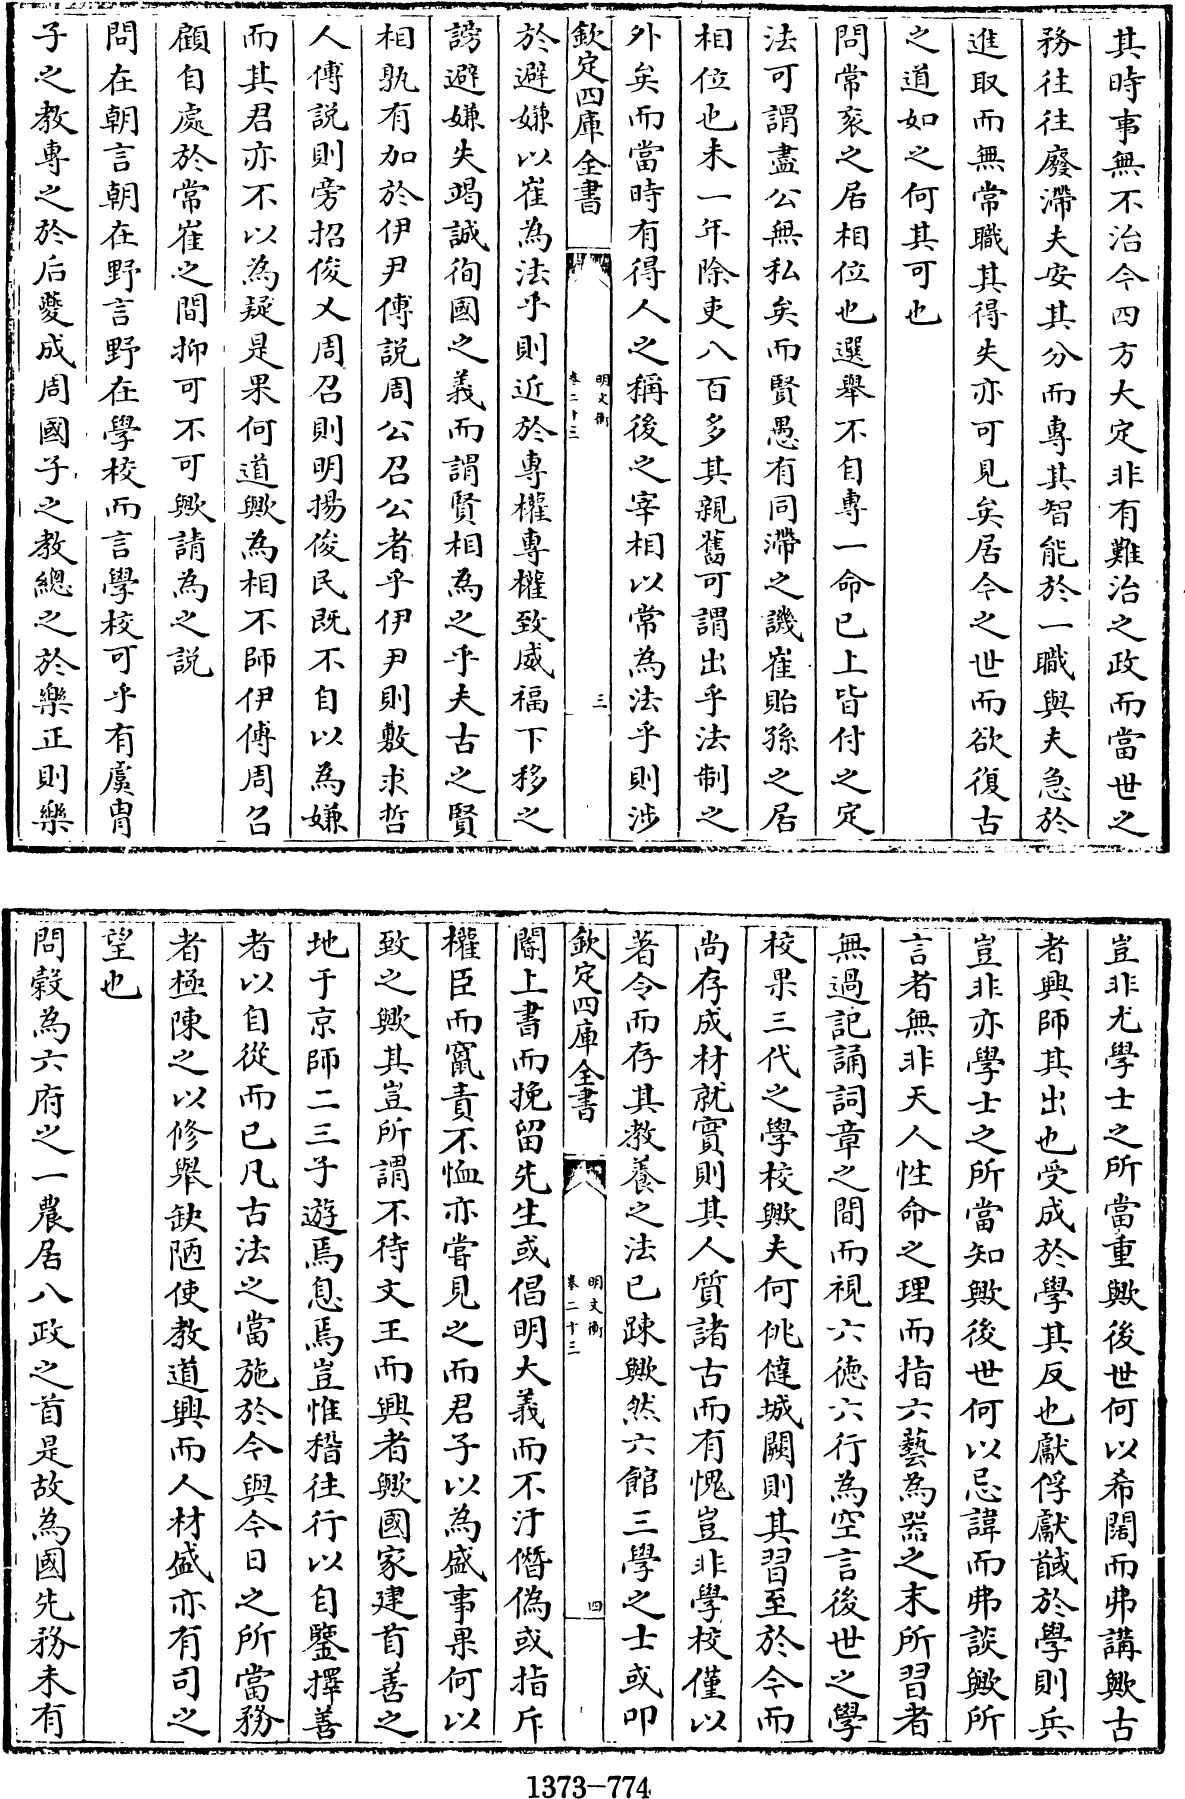 其時事無不治今四方大定非有難治之政而當世之
務往往廢滯夫安其分而專其智能於一職與夫急於
進取而無常職其得失亦可見矣居今之世而欲復古
之道如之何其可也
問常衮之居相位也選舉不自專一命已上皆付之定
法可謂盡公無私矣而賢愚有同滯之譏崔貽孫之居
相位也未一年除吏八百多其親舊可謂出乎法制之
外矣而當時有得人之稱後之宰相以常為法乎則涉
欽定四庫全書
明文衡
卷二十三
三
於避嫌以崔為法乎則近於專權專權致威福下移之
謗避嫌失竭誠徇國之義而謂賢相為之乎夫古之賢
相孰有加於伊尹傅説周公召公者乎伊尹則敷求哲
人傅説則旁招俊乂周召則明揚俊民既不自以為嫌
而其君亦不以為疑是果何道歟為相不師伊傅周召
顧自處於常崔之間抑可不可歟請為之説
問在朝言朝在野言野在學校而言學校可乎有虞胄
子之教專之於后夔成周國子之教總之於樂正則樂
豈非尤學士之所當重歟後世何以希闊而弗講歟古
者興師其出也受成於學其反也獻俘獻馘於學則兵
豈非亦學士之所當知歟後世何以忌諱而弗談歟所
言者無非天人性命之理而指六藝為器之末所習者
無過記誦詞章之間而視六德六行為空言後世之學
校果三代之學校歟夫何佻㒓城闕則其習至於今而
尚存成材就實則其人質諸古而有愧豈非學校僅以
著令而存其教養之法已踈歟然六館三學之士或叩
欽定四庫全書
明文衡
卷二十三
四
閽上書而挽留先生或倡明大義而不汙僭偽或指斥
權臣而竄責不恤亦嘗見之而君子以為盛事果何以
致之歟其豈所謂不待文王而興者歟國家建首善之
地于京師二三子遊焉息焉豈惟稽往行以自鑒擇善
者以自從而已凡古法之當施於今與今日之所當務
者極陳之以修舉缺陋使教道興而人材盛亦有司之
望也
問穀為六府之一農居八政之首是故為國先務未有
1373-774